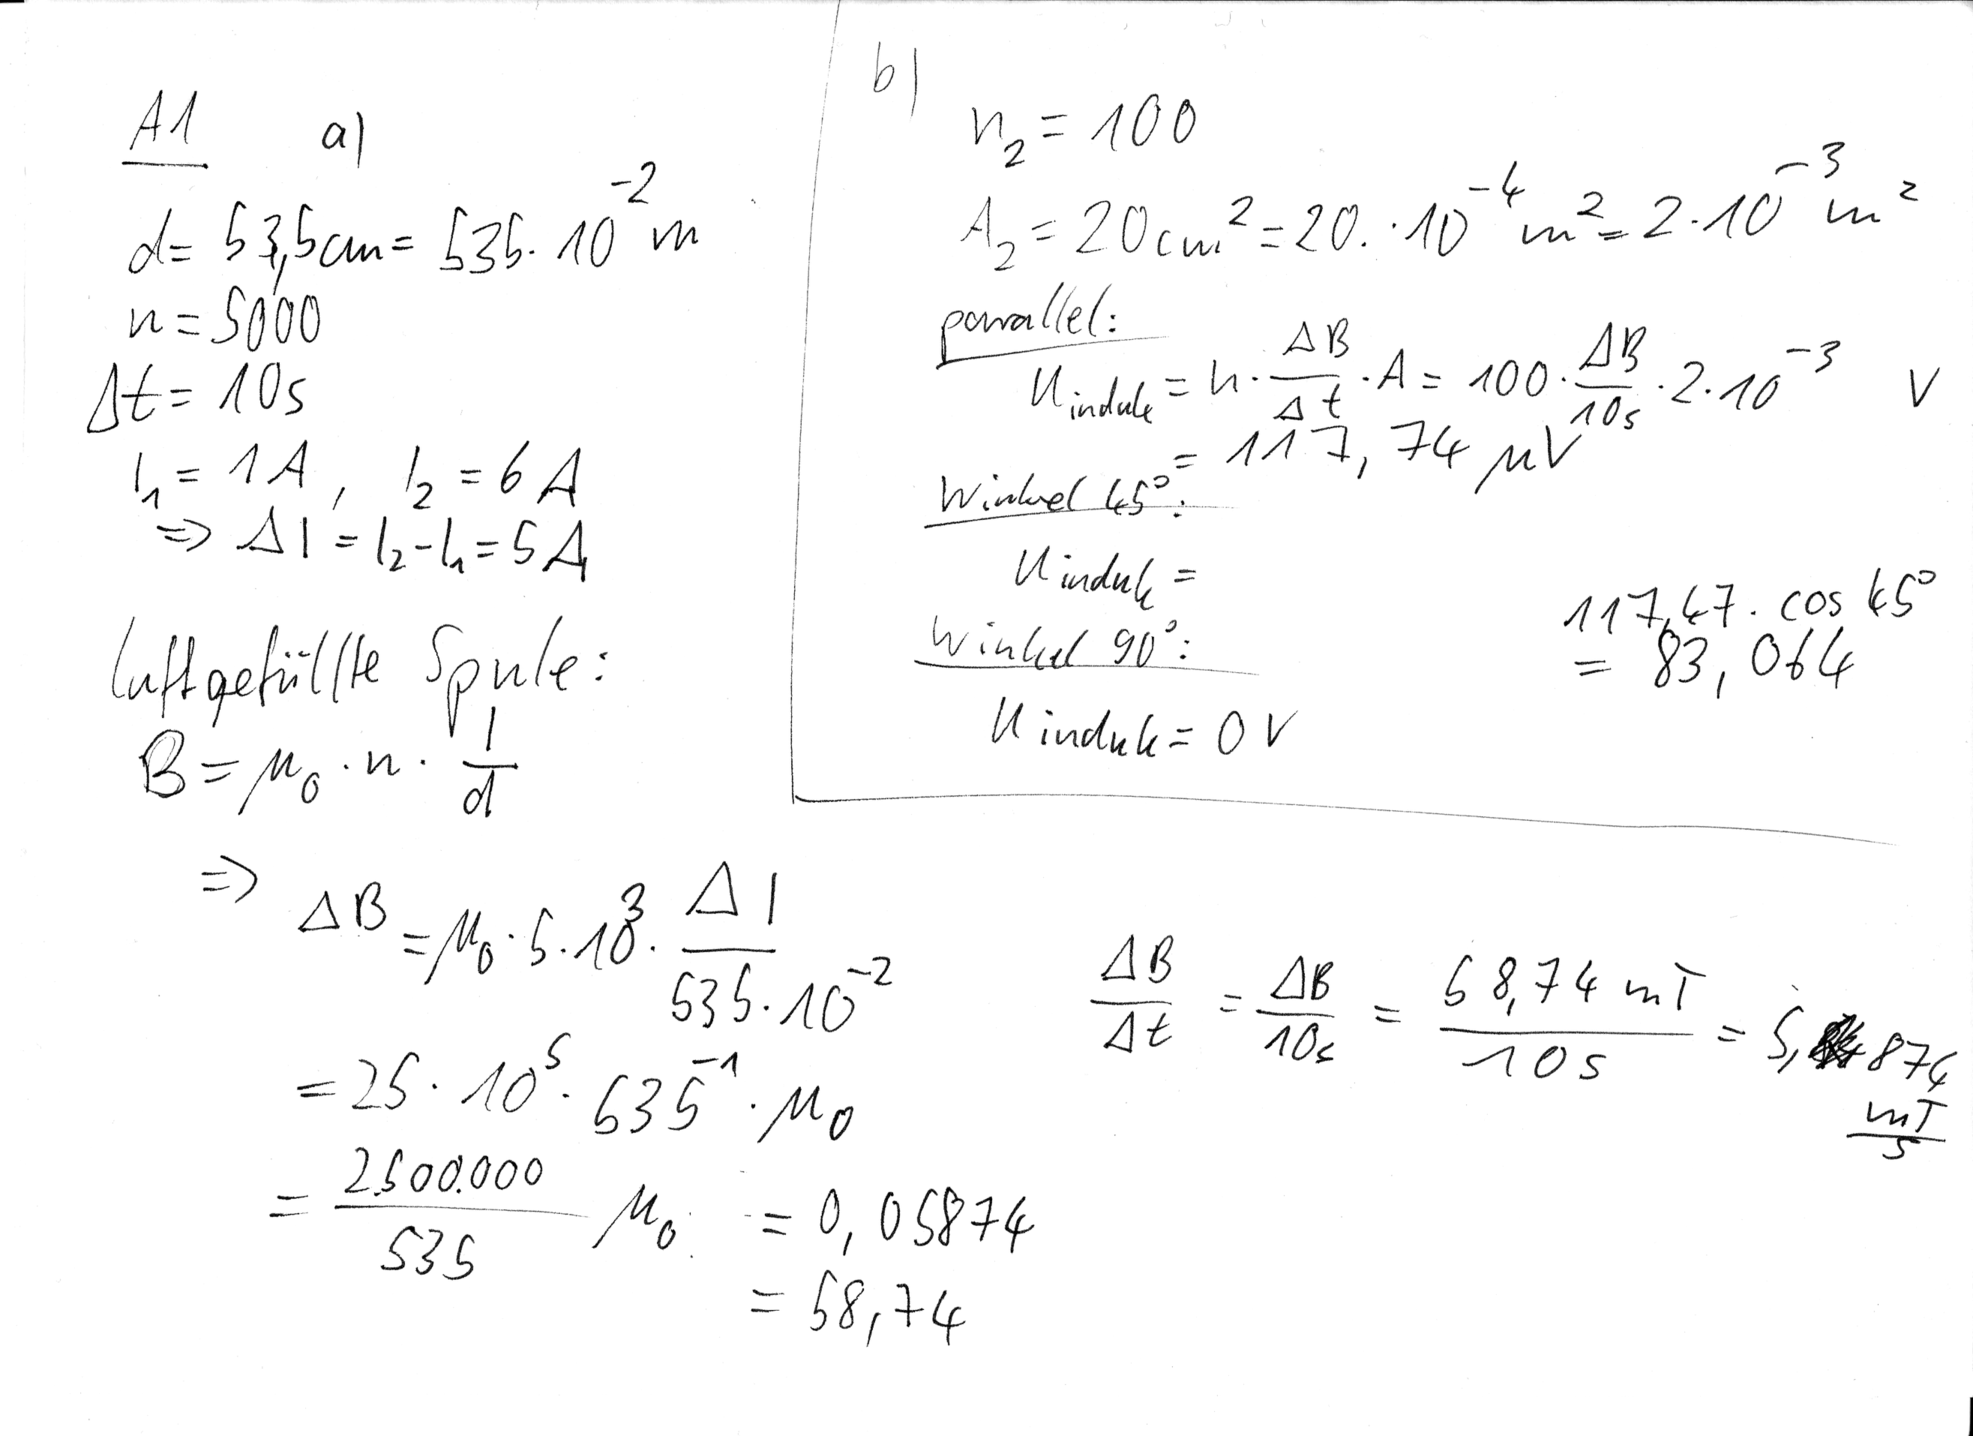 A1 a)
d = 53,5cm = 535 · 10^-2 m
n = 5000
Δt = 10s
I₁ = 1A, I₂ = 6A
=> ΔI = I₂-I₁ = 5A
luftgefüllte Spule:
B = μ₀ · n · I/d
=> ΔB = μ₀ · 5 · 10^3 · ΔI/(535 · 10^-2)
= 25 · 10^5 · 535^-1 · μ₀
= 2.500.000/535 μ₀ = 0,05874
= 58,74
b)
n₂ = 100
A₂ = 20cm² = 20. · 10^-4 m² = 2 · 10^-3 m²
parallel:
U induk = n · ΔB/Δt · A = 100 · ΔB/10s · 2 · 10^-3 V
= 117,74 μV
Winkel 45°:
U induk = 117,47 · cos 45°
= 83,064
Winkel 90°:
U induk = 0 V
ΔB/Δt = ΔB/10s = 58,74 mT/10s = 5,874 mT/s